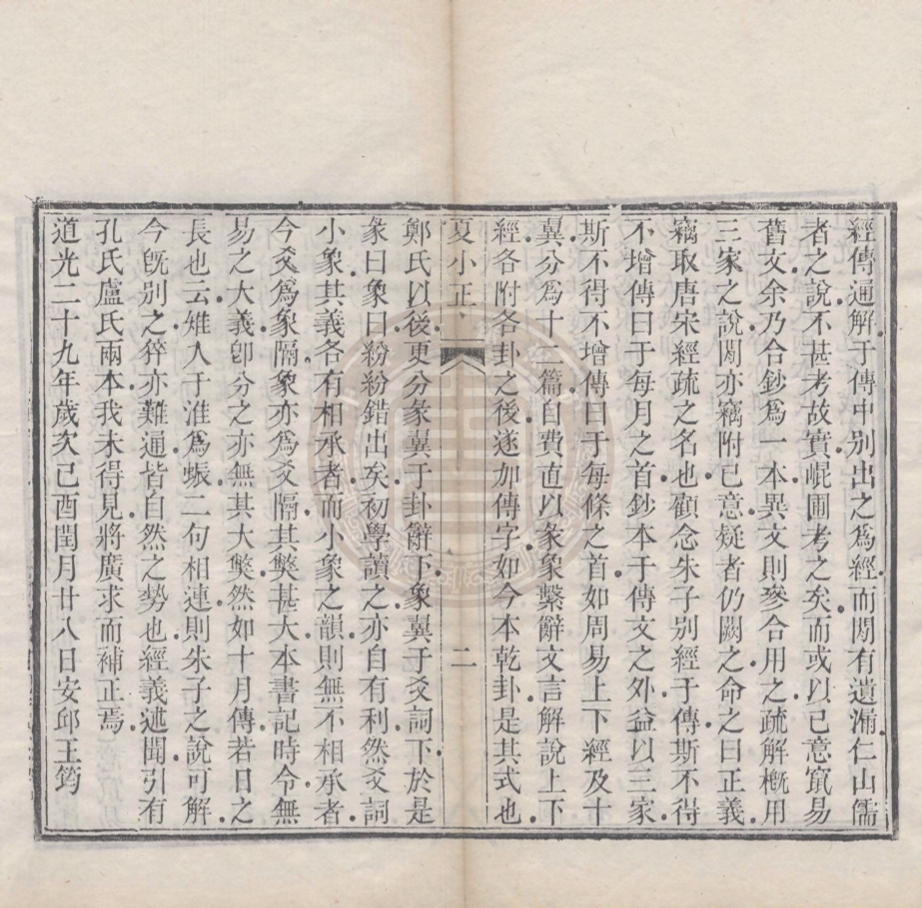 經傳通解于傳中別出之爲經而閒有遺漏仁山儒
者之說不甚考故實崐圃考之矣而或以已意竄易
舊文余乃合鈔爲一本異文則參合用之疏解槪用
三家之說閒亦竊附已意疑者仍闕之命之曰正義
竊取唐宋經疏之名也顧念朱子別經于傳斯不得
不增傳曰于每月之首鈔本于傳文之外益以三家
斯不得不增傳曰于每條之首如周易上下經及十
翼分爲十二篇自費直以彖象繫辭文言解說上下
經各附各卦之後遂加傳字如今本乾卦是其式也
夏小正 二
鄭氏以後更分彖翼于卦辭下象翼于爻詞下於是
彖曰象曰紛紛錯出矣初學讀之亦自有利然爻詞
小象其義各有相承者而小象之韻則無不相承者
今爻爲象隔象亦爲爻隔其獘甚大本書記時令無
易之大義卽分之亦無其大獘然如十月傳若日之
長也云雉入于淮爲蜃二句相連則朱子之說可解
今旣別之猝亦難通皆自然之勢也經義述聞引有
孔氏盧氏兩本我未得見將廣求而補正焉
道光二十九年歲次己酉閏月廿八日安邱王筠